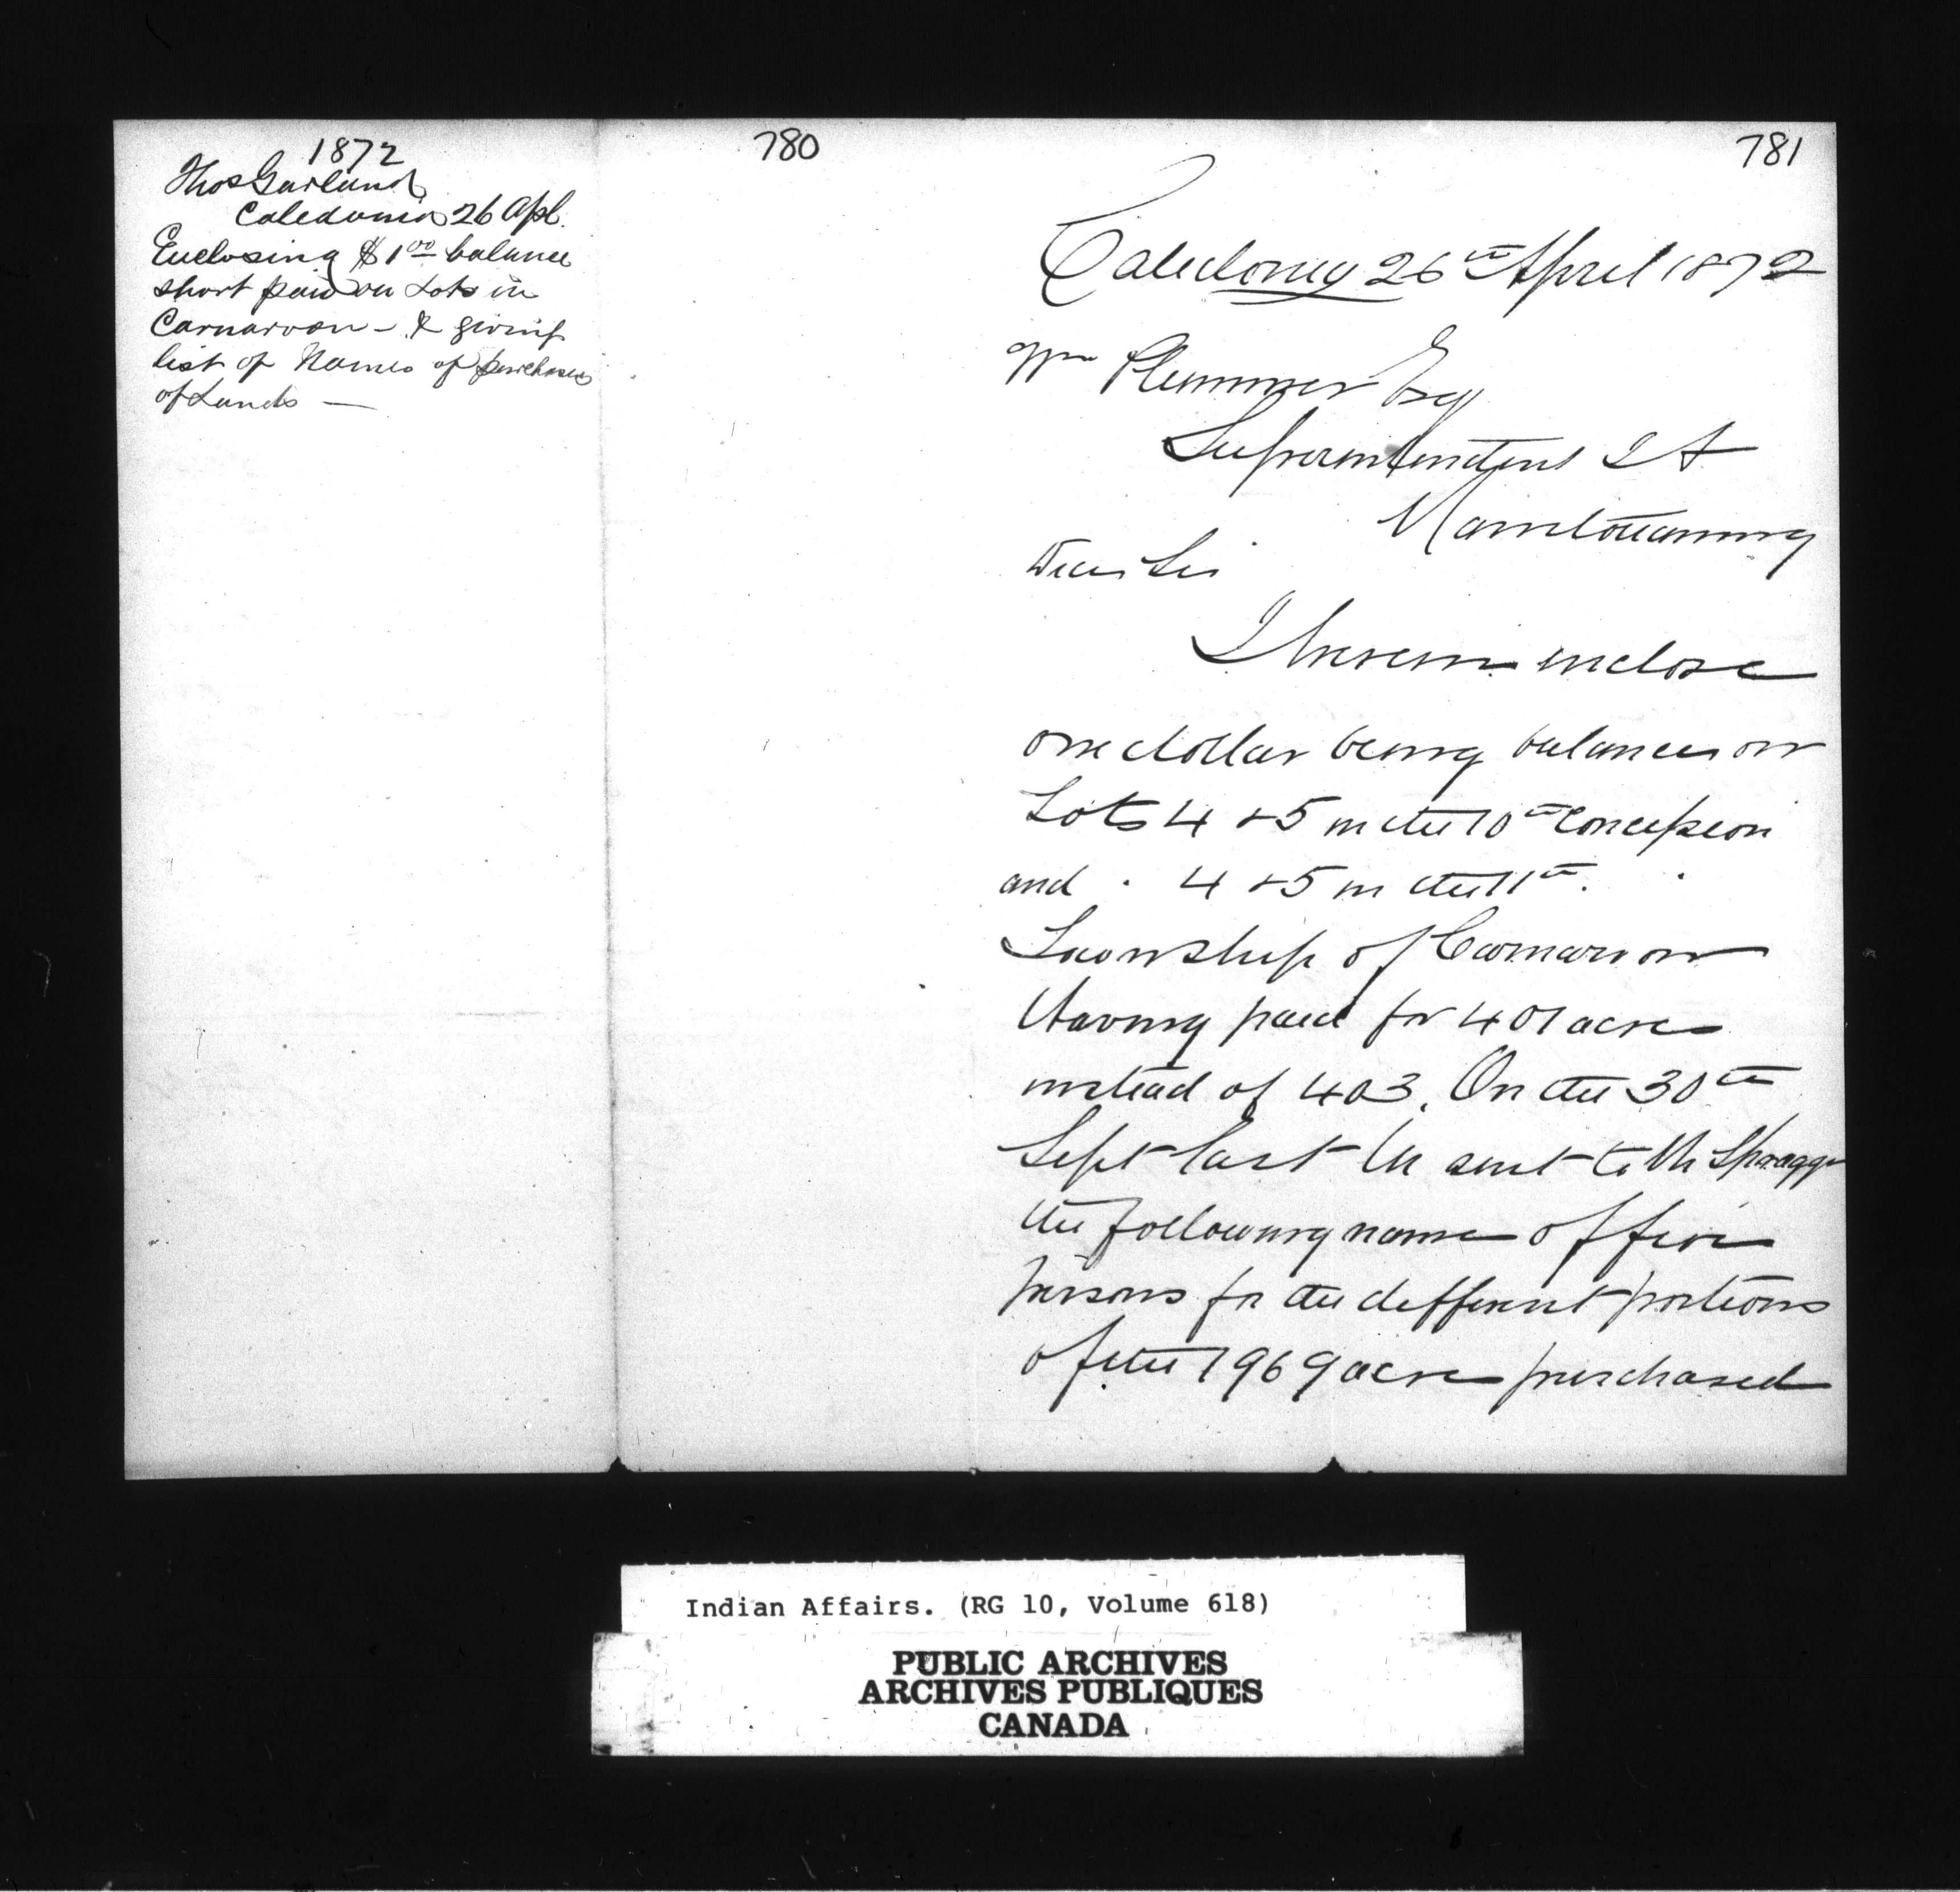 1872
Thos Garland
Caledonia 26 Apl.
Enclosing $1 00 balance
short paid on Lots in
Carnarvon - & giving
list of Names of purchasers
of Lands —
780
781
Caledonia 26th April 1872
Wm Plummer Esq
Superintendent I A
Manitouaning
Dear Sir
I herein inclose
one dollar being balance on
Lots 4 & 5 in the 10th Concession
and " 4 & 5 in the 11th "
Township of Carnarvon
Having paid for 401 acres
instead of 403. On the 30th
Sept last We sent to Mr Spragge
the following names of five
persons for the different portions
of the 1969 acres purchased
Indian Affairs. (RG 10, Volume 618)
PUBLIC ARCHIVES
ARCHIVES PUBLIQUES
CANADA